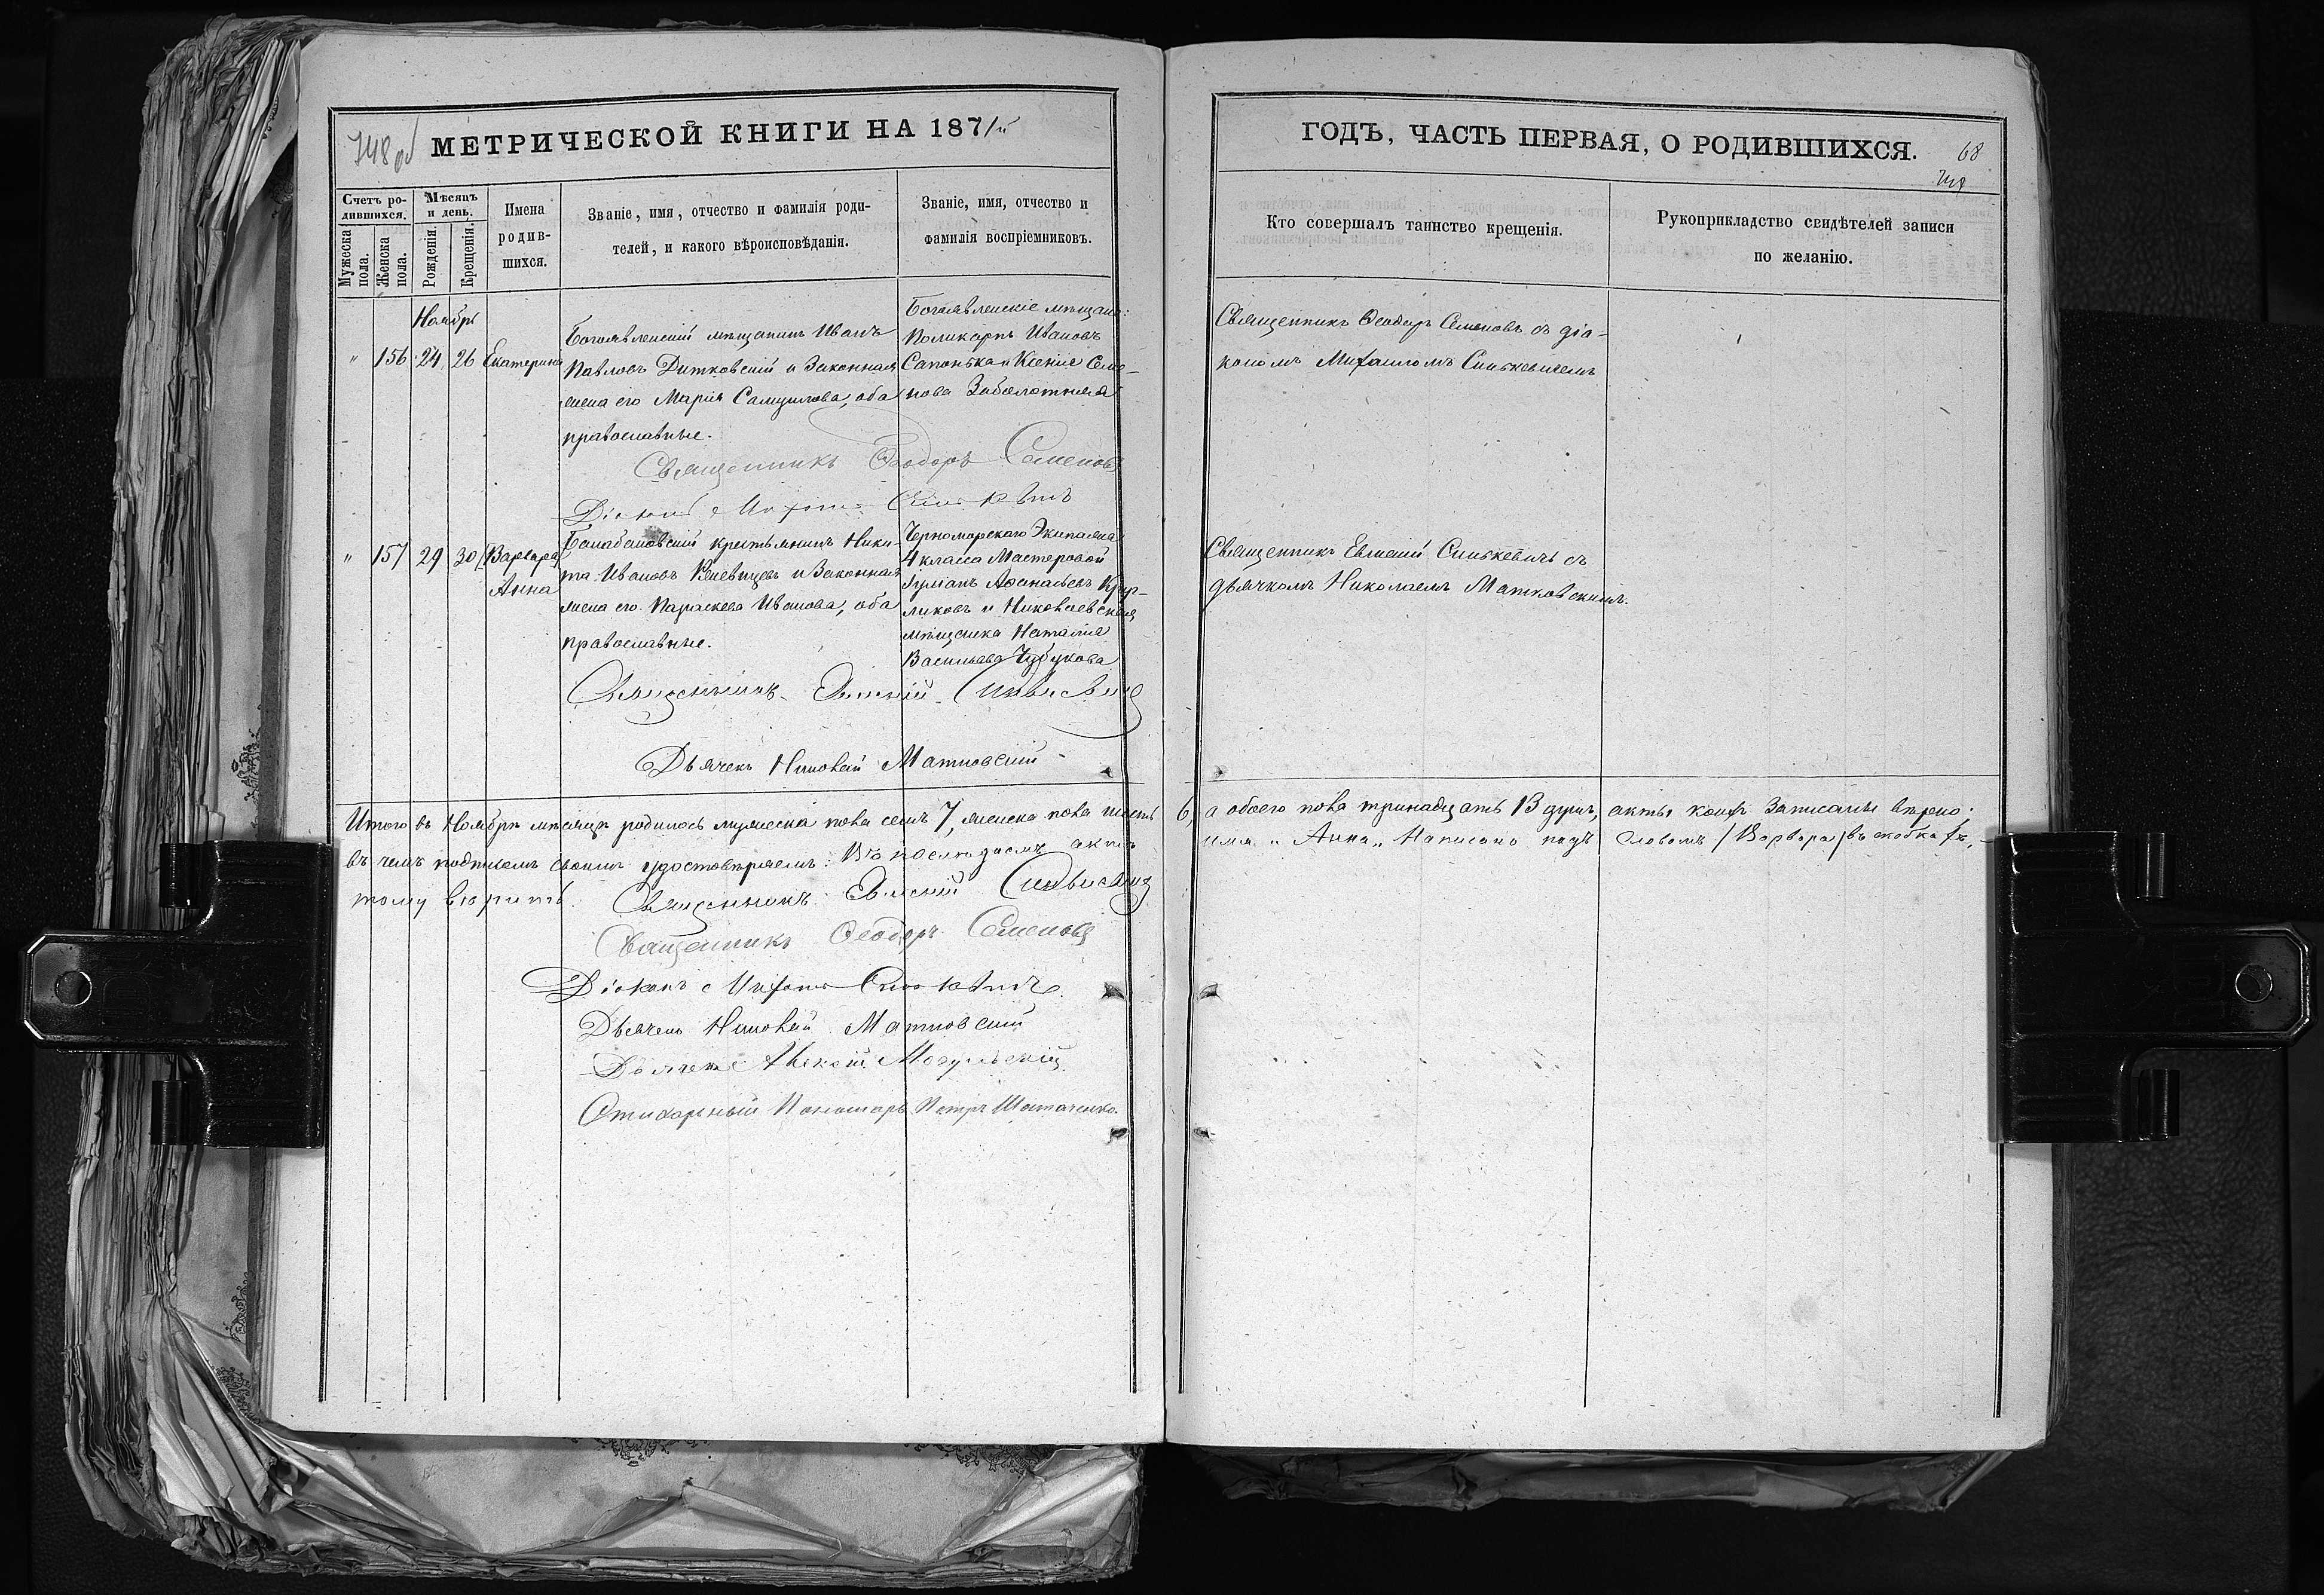 748 об
МЕТРИЧЕСКОЙ КНИГИ НА 1871й
ГОДЪ, ЧАСТЬ ПЕРВАЯ, О РОДИВШИХСЯ.
68
Счетъ ро-
дившихся.
Мужеска
пола.
Женска
пола.
Мѣсяцъ
и день.
Рожденія.
Крещенія.
Имена
родив-
шихся.
Званіе, имя, отчество и фамилія роди-
телей, и какого вѣроисповѣданія.
Званіе, имя, отчество и
фамилія воспріемниковъ.
Кто совершалъ таинство крещенія.
Рукоприкладство свидѣтелей записи
по желанію.
Ноябрь
" 156 24 26 Екатерина
Богоявленскій мѣщанинъ Иванъ
Павловъ Дитковскій и законная
жена его Марія Самуилова, оба
православные.
Богоявленскіе мѣщане:
Поликарпъ Ивановъ
Сапонька и Ксенія Семе-
нова Заболотняя
Священникъ Ѳеодоръ Семеновъ съ діа-
кономъ Михаиломъ Синькевичемъ
Священникъ Ѳеодоръ Семеновъ
Діаконъ Михаилъ Синькевичъ
" 157 29 30 (Варвара)
Анна
Балабановскій крестьянинъ Ники-
та Ивановъ и законная
жена его Параскева Иванова, оба
православные.
Черноморскаго Экипажа
4 класса Мастеровой
Лукіанъ Аѳанасьевъ
и Николаевская
мѣщанка Наталія
Васильева Чубукова
Священникъ Евменій Синькевичъ съ
дьячкомъ Николаемъ Матковскимъ.
Священникъ Евменій Синькевичъ
Дьячекъ Николай Матковскій
Итого въ Ноябрѣ мѣсяцѣ родилось мужеска пола семь 7, женска пола шесть 6, а обоего пола тринадцать 13 душъ, акты коихъ записаны вѣрно;
въ чемъ подписомъ своимъ удостовѣряемъ: Въ послѣднемъ актѣ имя "Анна" написано подъ словомъ (Варвара) въ скобкахъ,
тому вѣрить. Священникъ Евменій Синькевичъ
Священникъ Ѳеодоръ Семеновъ
Діаконъ Михаилъ Синькевичъ
Дьячекъ Николай Матковскій
Дьячекъ Алексій Могульскій
Стихарный Пономарь Петръ